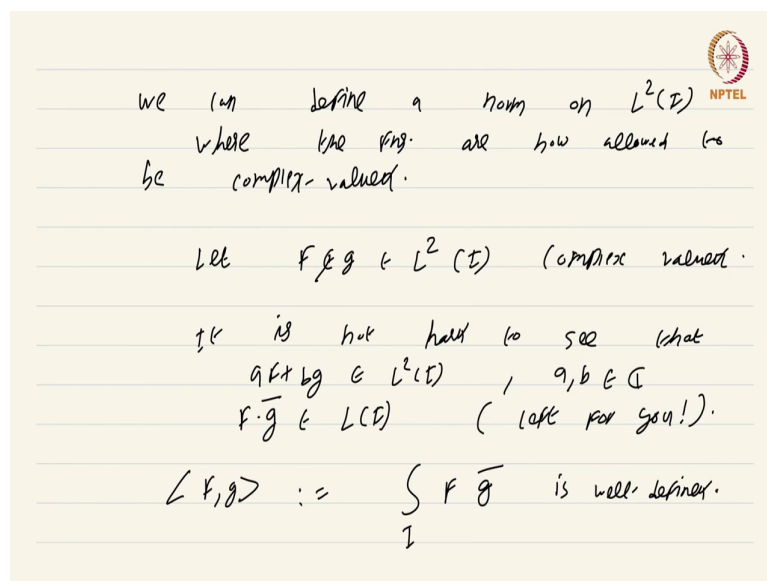 NPTEL
we can define a norm on L²(I)
where the fns. are now allowed to
be complex-valued.
Let f & g ∈ L²(I) complex valued.
It is not hard to see that
af + bg ∈ L²(I) , a, b ∈ ℂ
f·g̅ ∈ L(I) ( left for you!).
⟨f,g⟩ := ∫_I f g̅ is well-defined.